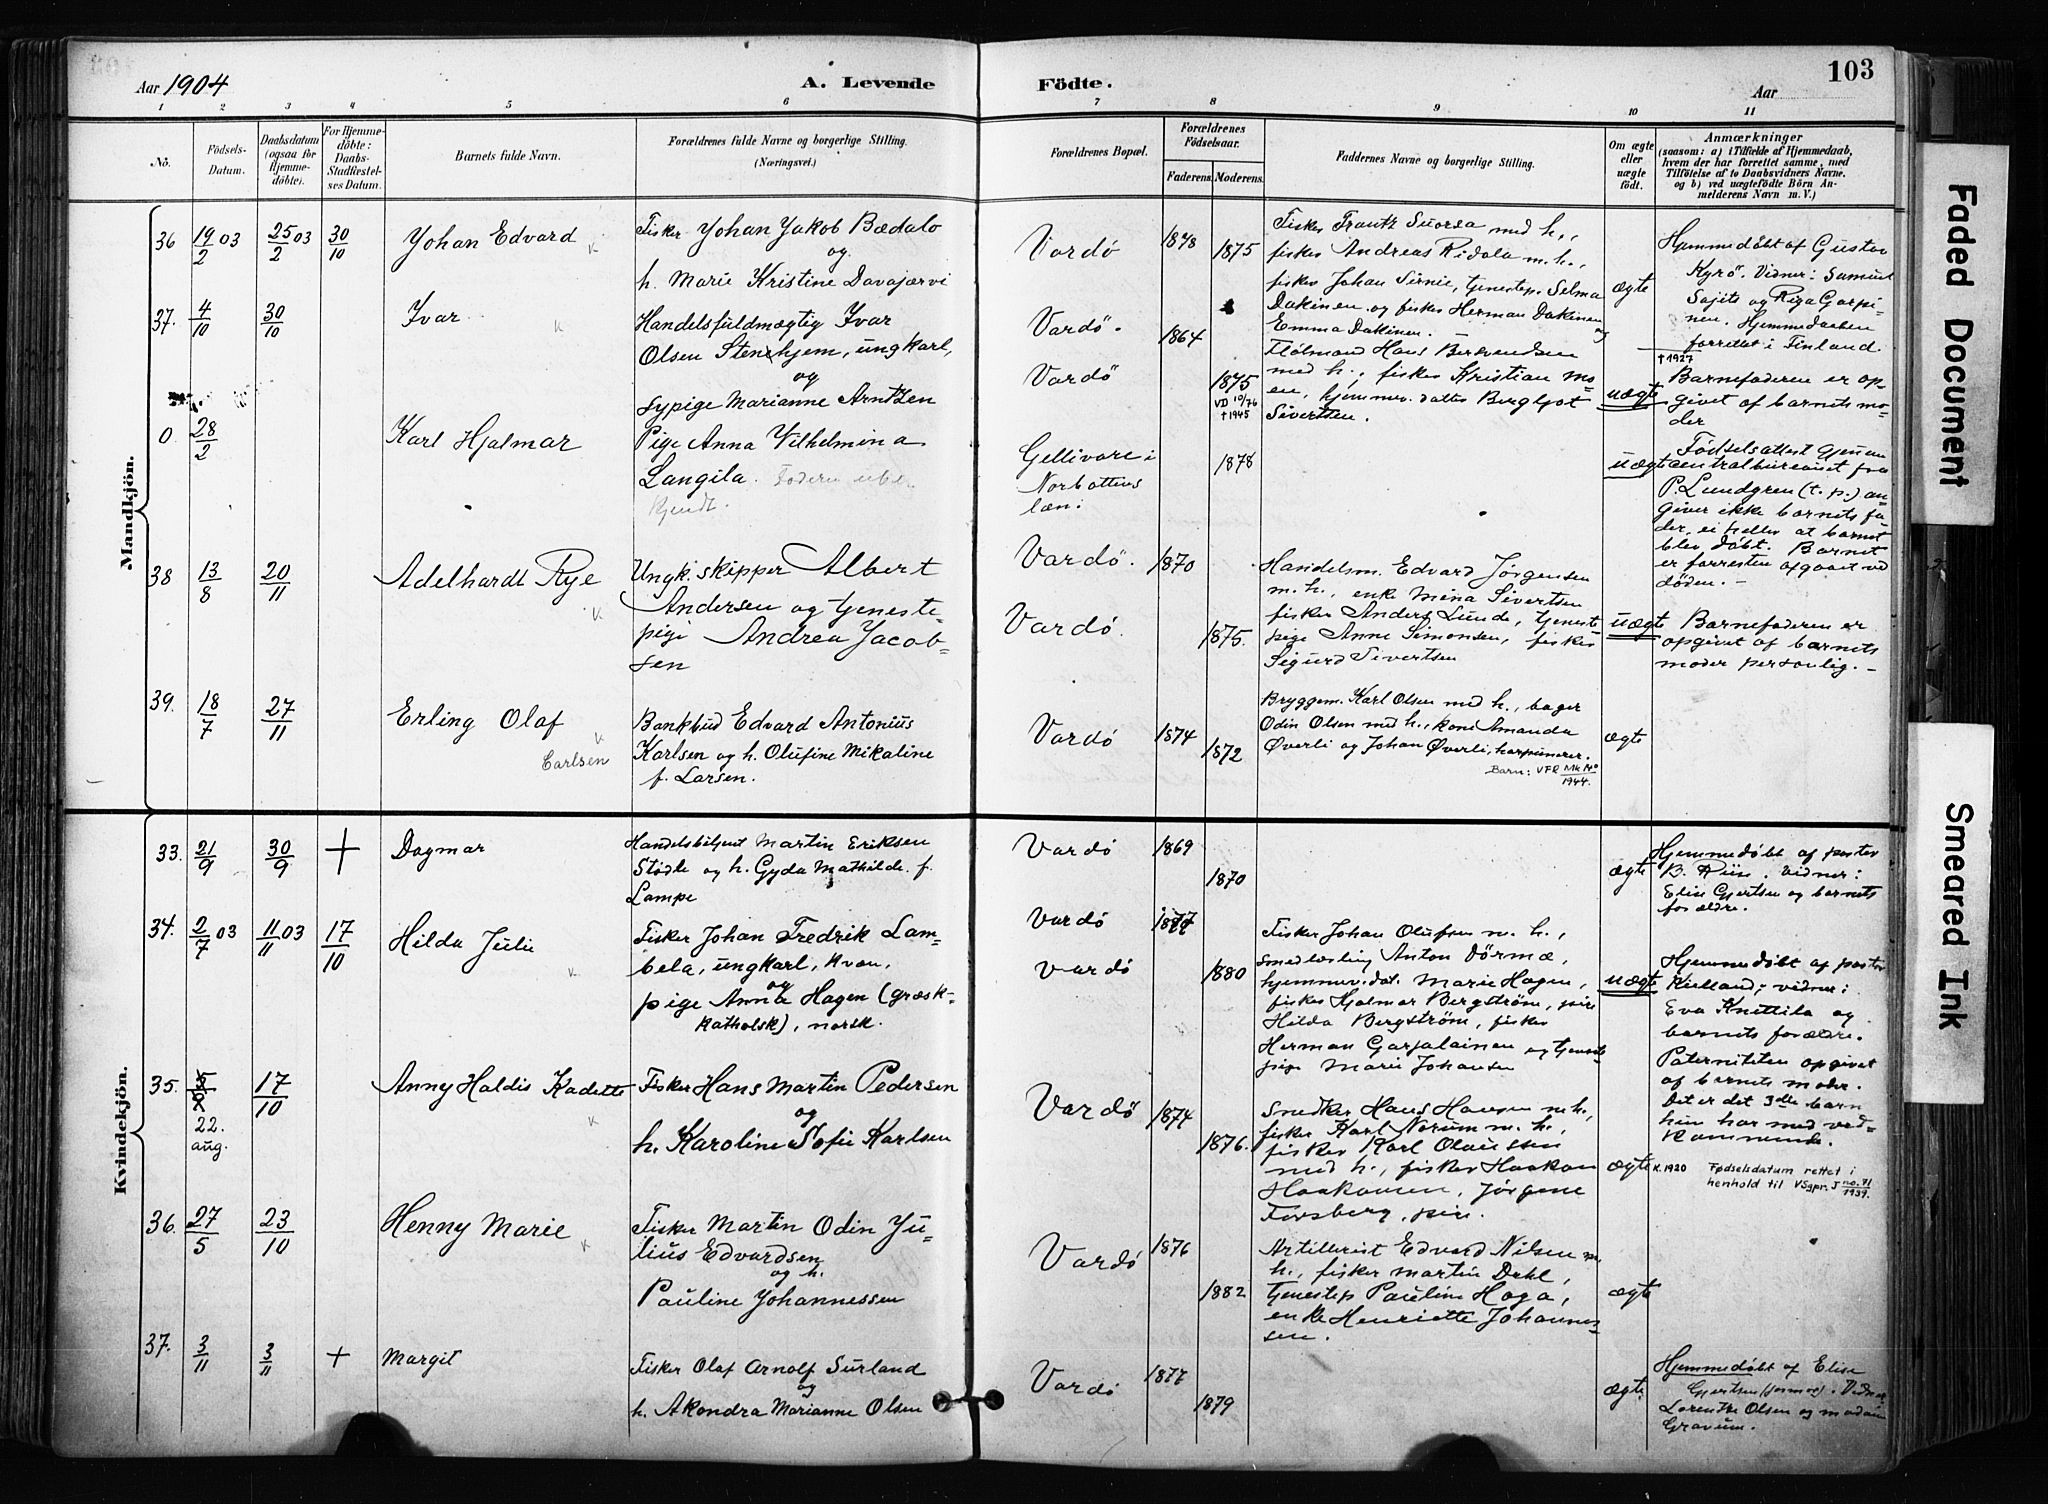 Aar 1904
A. Levende Födte.
Aar
103
1 2 3 4 5 6 7 8 9 10 11
No.
Födsels-Datum.
Daabsdatum (ogsaa for Hjemme-döbte).
For Hjemme-döbte: Daabs-Stadfæstel-ses Datum.
Barnets fulde Navn.
Forældrenes fulde Navne og borgerlige Stilling.
(Næringsvei.)
Forældrenes Bopæl.
Forældrenes Födselsaar.
Faderens. Moderens.
Faddernes Navne og borgerlige Stilling.
Om ægte eller uægte födt.
Anmærkninger
(saasom: a) i Tilfælde af Hjemmedaab,
hvem der har forrettet samme, med
Tilföielse af to Daabsvidners Navne,
og b) ved uægtefödte Börn An-
melderens Navn m. V.)
Mandkjön.
36 19/2 03 25/2 03 30/10
Johan Edvard
Fisker Johan Jakob Bædalo
og
h. Marie Kristine Davajærvi
Vardö
1878
1875
Fisker Frantz Suorsa med h.,
fisker Andreas Ridala m. h.,
fisker Johan Sirnie, tjenestep. Selma
Dakinen og fisker Herman Dakinen og
Emma Dakinen.
ægte
Hjemmedöbt af Gustav
Kyrö. Vidner: Samuel
Sajets og Riga Garpi-
nen. Hjemmedaaben
forrettet i Finland.
37. 4/10 30/10
Ivar
Handelsfuldmægtig Ivar
Olsen Stenehjem, ungkarl,
og
sypige Marianne Arntzen
Vardö.
Vardö
1864
1875
VD 10/76
†1945
Flölmand Hans Berntendsen
med h., fisker Kristian Mo-
en, hjemmev. datter Bergljot
Sivertsen.
uægte
†1927
Barnefaderen er op-
givet af barnets mo-
der
0 28/2
Karl Hjalmar
Pige Anna Vilhelmina
Langila. Faderen ube-
kjendt.
Gellivare i
Norbottens
læn.
1878
uægte
Födselsattest gjennem
centralbureauet fra
P. Lundgren (t. p.) an-
giver ikke barnets fa-
der, ei heller at barnet
blev döbt. Barnet
er forresten opgaaet ved
döden. -
38 13/8 20/11
Adelhardt Rye
Ungk. skipper Albert
Andersen og tjeneste-
pige Andrea Jacob-
sen
Vardö.
Vardö.
1870
1875.
Handelsm. Edvard Jörgensen
m. h., enke Mina Sivertsen
fisker Anders Lunde, tjeneste
pige Anne Simonsen, fisker
Sigurd Sivertsen
uægte
Barnefaderen er
opgivet af barnets
moder personlig. -
39. 18/7 27/11
Erling Olaf
Carlsen
Bankbud Edvard Antonius
Karlsen og h. Olufine Mikaline
f. Larsen.
Vardö
1874
1872
Bryggem. Karl Olsen med h., bager
Odin Olsen med h., kone Amanda
Øverli og Johan Øverli, harpunerer.
Barn: VFR
1944.
ægte
Kvindekjön.
33. 21/9 30/9 +
Dagmar
Handelsbetjent Martin Eriksen
Städle og h. Gyda Mathilde f.
Lampe
Vardö
1869
1870
ægte
Hjemmedöbt af pastor
B. Vidner:
Elise Gjertsen og barnets
forældre.
34. 2/7 03 11/11 03 17/10
Hilda Juli
Fisker Johan Fredrik Lam-
bela, ungkarl, kvæn,
og
pige Anna Hagen (græsk-
katholsk), norsk.
Vardö
Vardö
1877
1880
Fisker Johan Olufsen m. h.,
smedlærling Anton Dörmæ,
hjemmev. dat. Marie Hagen,
fisker Hjalmar Bergström, pige
Hilda Bergström, fisker
Herman Garjalainen og tjeneste
pige Marie Johansen
uægte
Hjemmedöbt af pastor
Kielland; vidner:
Eva Knittila og
barnets forældre.
Paterniteten opgivet
af barnets moder.
Det er det 3die barn
hun har med ved-
kommende.
35. 17/10
22.
aug.
Anny Haldis Kadette
Fisker Hans Martin Pedersen
og
h. Karoline Sofie Karlsen
Vardö
1874
1876.
Snedker Hans Hansen m. h.,
fisker Karl Norum m. h.,
fisker Karl Olaussen
med h., fisker Haakon
Haakonsen, Jörgine
Forsberg, pige.
ægte
K. 1920 Fødselsdatum rettet i
henhold til VSgpr. J no. 71/1939.
36. 27/5 23/10
Henny Marie
Fisker Martin Odin Ju-
lius Edvardsen
og h.
Pauline Johannessen
Vardö
1876
1882
Artillerist Edvard Nilsen m.
h., fisker Martin Dahl,
tjenestep Pauline Haga,
enke Henriette Johannes-
sen.
ægte
37. 3/11 3/11 +
Margit
Fisker Olaf Arnolf Surland
og
h. Akondra Marianne Olsen
Vardö
1877
1879
ægte
Hjemmedöbt af Elise
Gjertsen (jormor). Vidner
Lorentze Olsen og madam
Gravum.
Faded Document
Smeared Ink